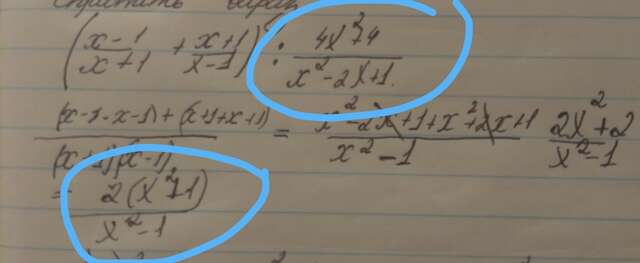 Упростить
(x-1/x+1 + x+1/x-1) : 4x²+4/x²-2x+1
(x-1·x-1)+(x+1+x+1)/(x+1)(x-1) = x²-2x+1+x²+2x+1/x²-1 2x²+2/x²-1
= 2(x²+1)/x²-1